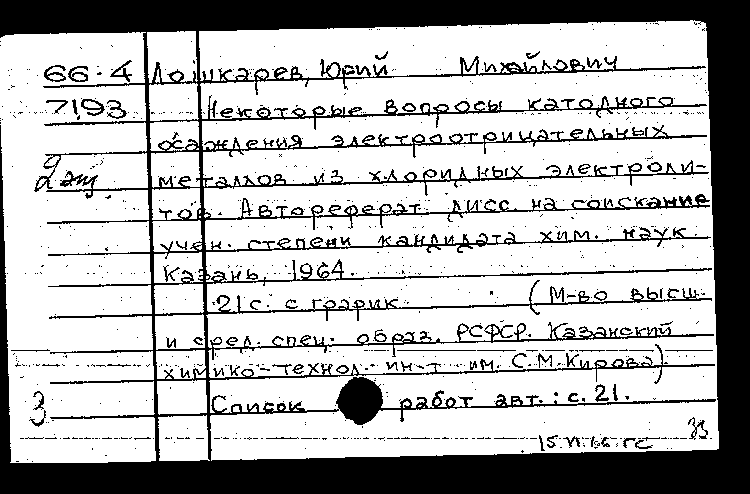 66-4 Лошкарев, Юрий Михайлович
7193 Некоторые вопросы катодного
осаждения электроотрицательных
2 эк. металлов из хлоридных электроли-
тов. Автореферат дисс. на соискание
учен. степени кандидата хим. наук
Казань, 1964.
21 с. с график. (М-во высш.
и сред. спец. образ. РСФСР. Казанский
химико-технол. ин-т им. С.М.Кирова)
3 Список работ авт.: с. 21.
15.VI.66. ГС 33